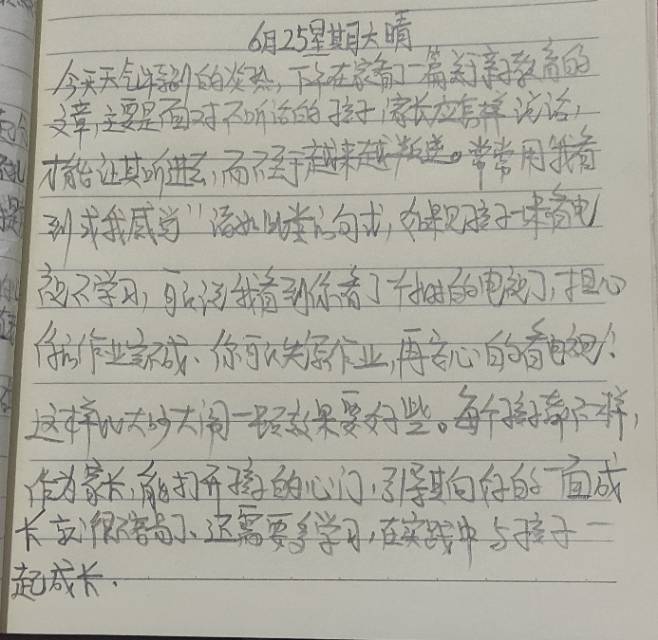 6月25星期六 晴
今天天气特别的炎热,下午在家看了一篇关于亲子教育的
文章,主要是面对不听话的孩子,家长应怎样说话,
才能让其听进去,而不至于越来越叛逆。常常用我看
到或我感觉"诸如此类的句式,如果见孩子一味看电
视不学习,可以说我看到你看了一小时的电视了,担心
你的作业完不成、你可以先写作业,再安心的看电视!
这样比大吵大闹一顿效果要好些。每个孩子都不一样,
作为家长,能打开孩子的心门,引导其向好的一面成
长就很不容易了、还需要多学习,在实践中与孩子一
起成长.